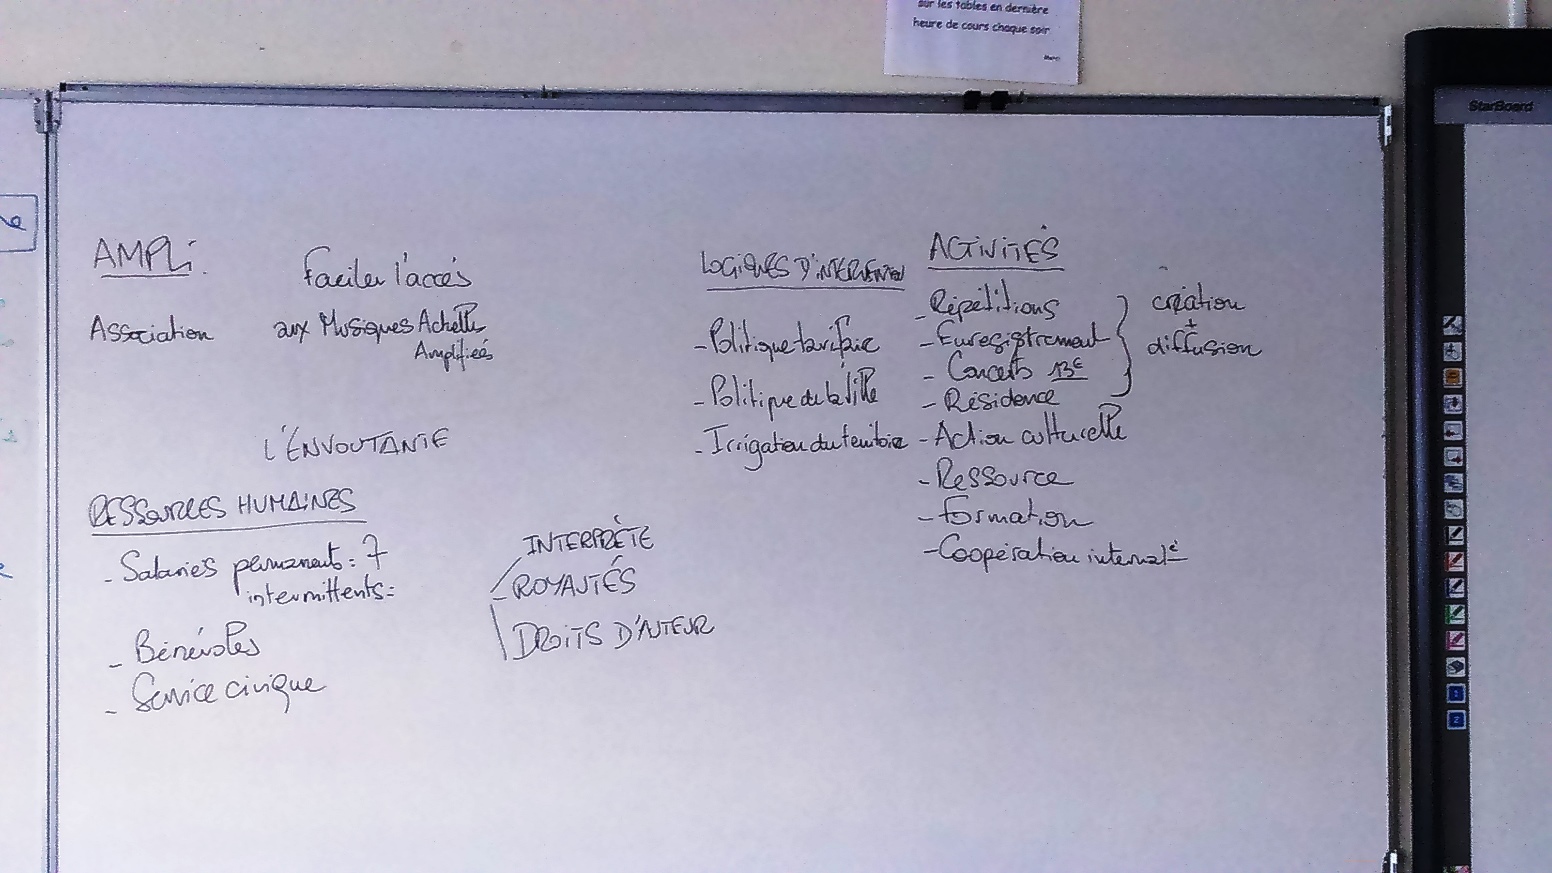 sur les tables en dernière
heure de cours chaque soir
Merci
StarBoard
AMPLI.
Association
Faciliter l'accès
aux Musiques Actuelles
Amplifiées
L'ENVOUTANTE
RESSOURCES HUMAINES
- Salariés permanents : 7
intermittents =
- Bénévoles
- Service civique
INTERPRÈTE
- ROYAUTÉS
DROITS D'AUTEUR
LOGIQUES D'INTERVENTION
- Politique tarifaire
- Politique de la Ville
- Irrigation du territoire
ACTIVITÉS
- Répétitions
- Enregistrement
- Concerts 13€
- Résidence
- Action culturelle
- Ressource
- Formation
- Coopération internale
création
+
diffusion
1
2